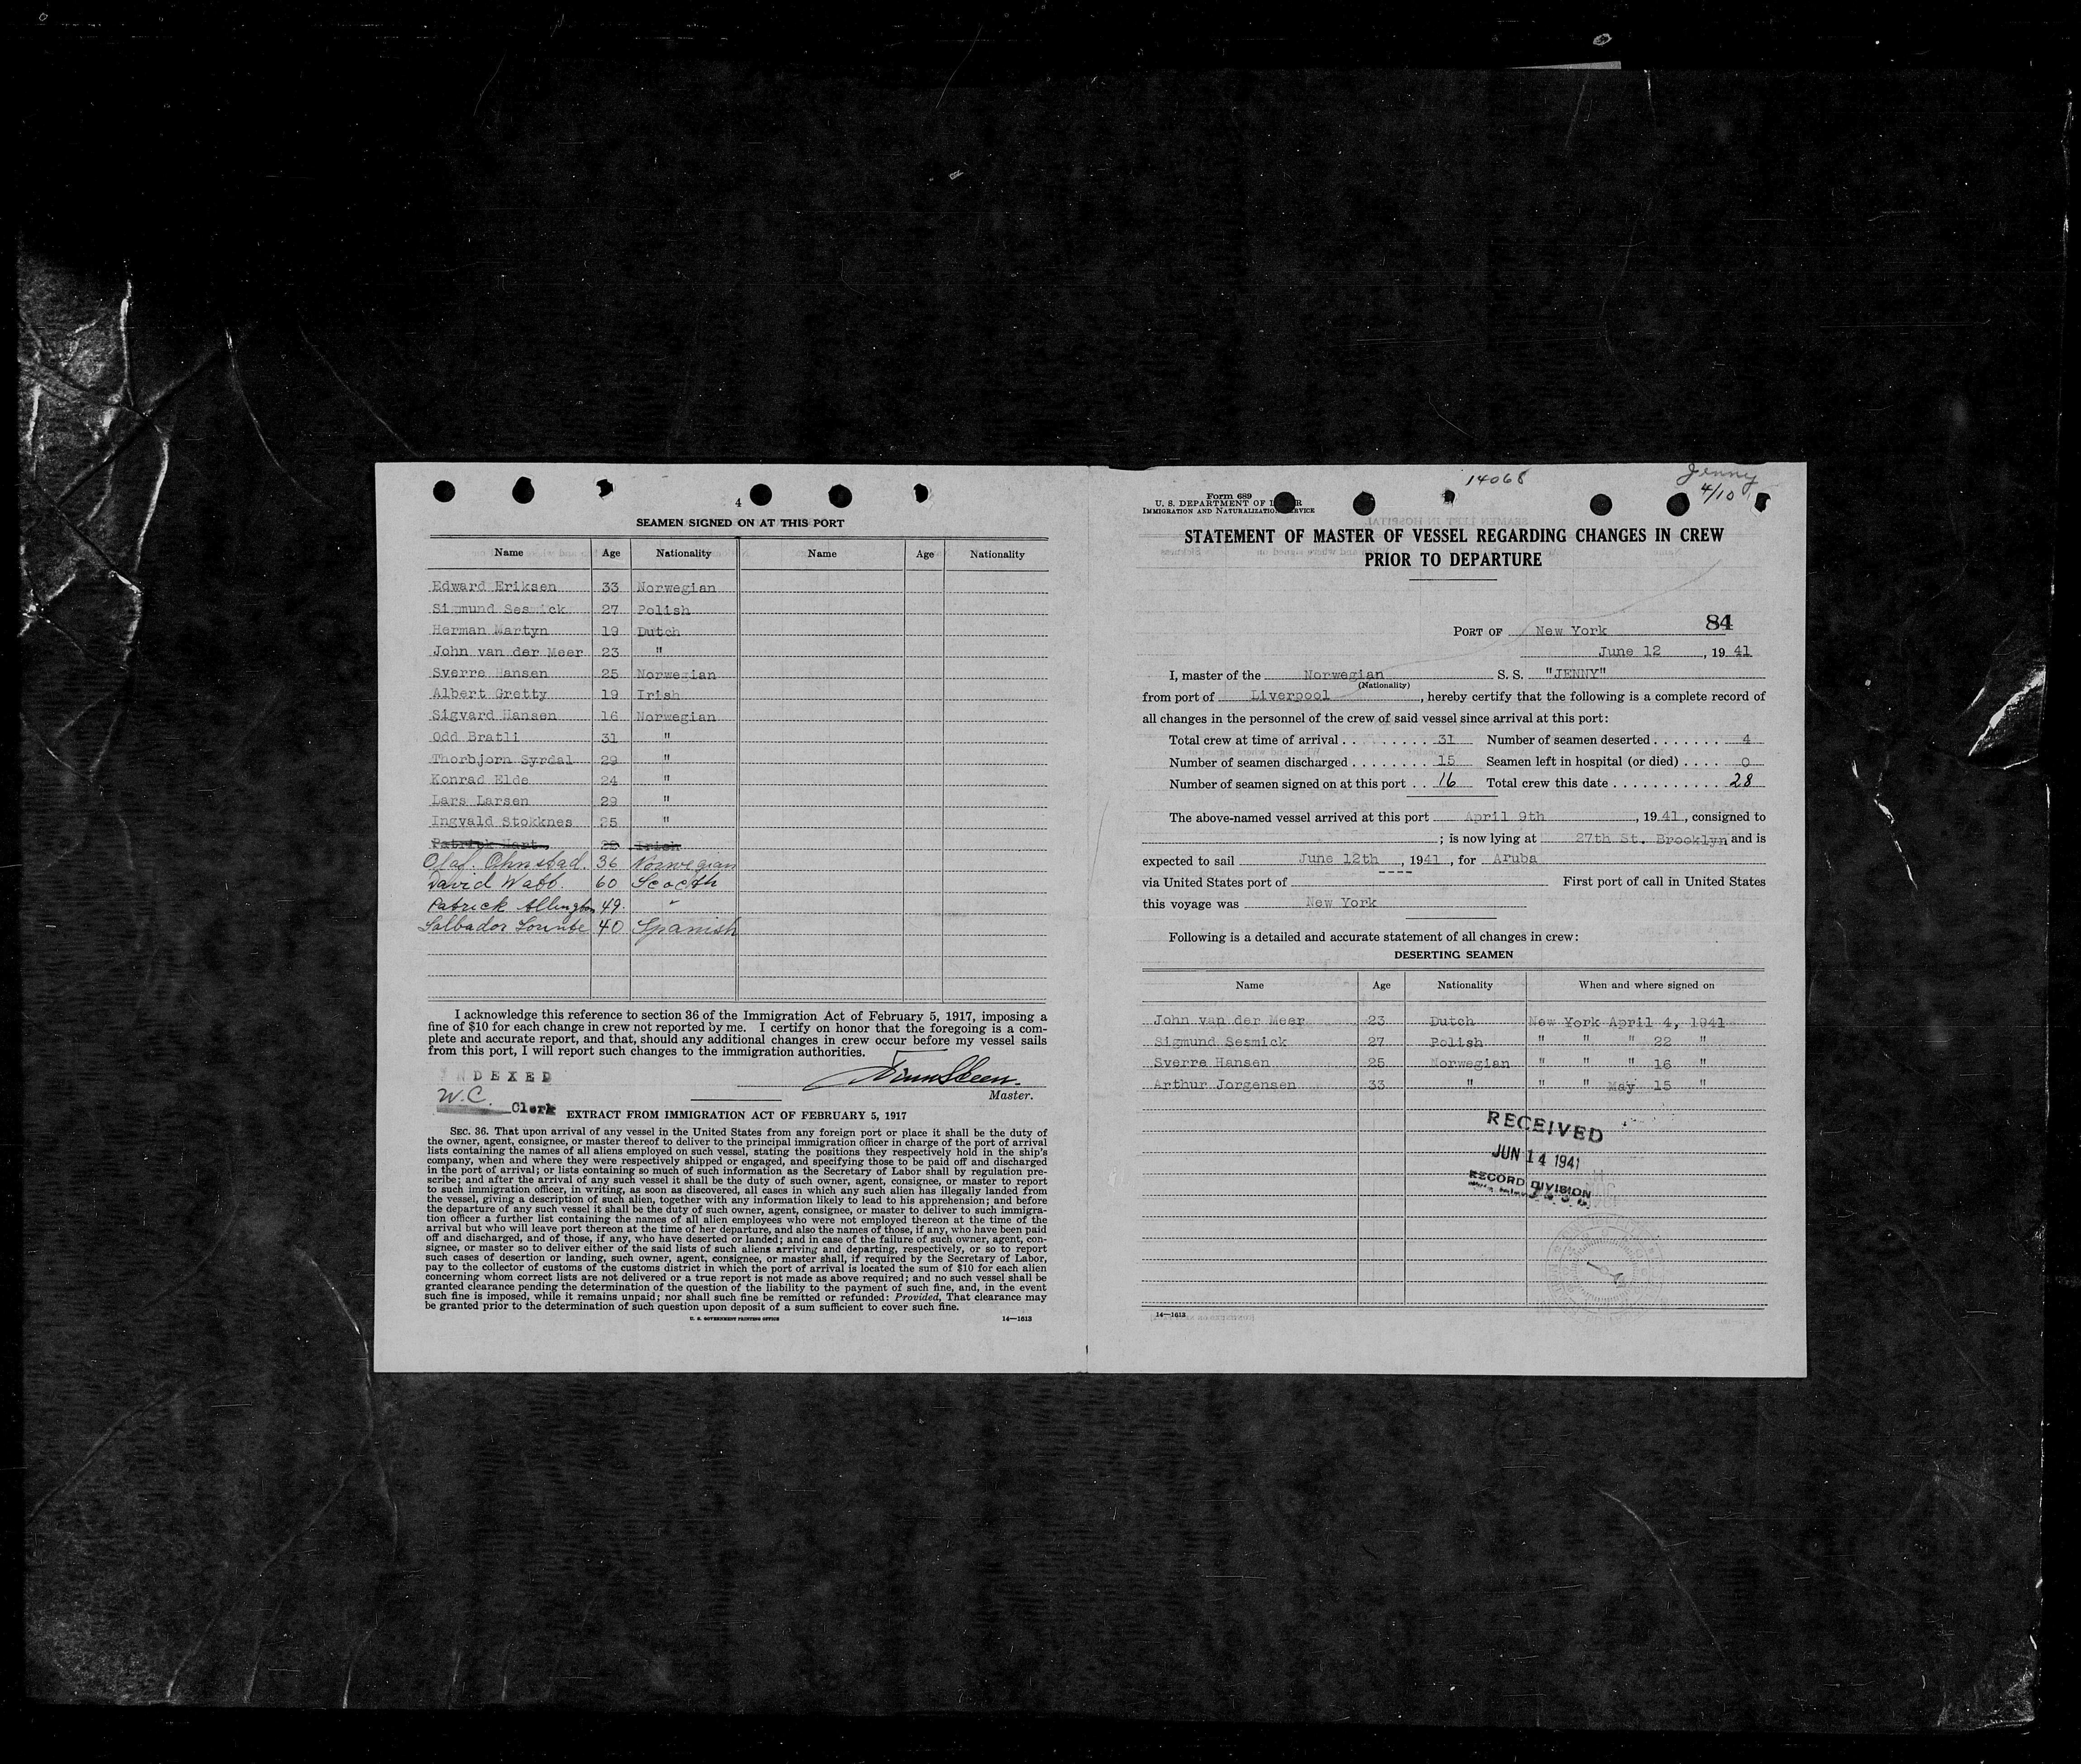 4
SEAMEN SIGNED ON AT THIS PORT
Name Age Nationality Name Age Nationality
Edward Eriksen 33 Norwegian
Sigmund Sesmick 27 Polish
Herman Martyn 19 Dutch
John van der Meer 23 "
Sverre Hansen 25 Norwegian
Albert Gretty 19 Irish
Sigvard Hansen 16 Norwegian
Odd Bratli 31 "
Thorbjorn Syrdal 29 "
Konrad Elde 24 "
Lars Larsen 29 "
Ingvald Stokknes 25 "
Patrick Hart Irish
Olaf. Ohnstad. 36 Norwegian
David Wabb. 60 Scocth
Patrick Allington 49. "
Salbador 40 Spanish
I acknowledge this reference to section 36 of the Immigration Act of February 5, 1917, imposing a
fine of $10 for each change in crew not reported by me. I certify on honor that the foregoing is a com-
plete and accurate report, and that, should any additional changes in crew occur before my vessel sails
from this port, I will report such changes to the immigration authorities.
INDEXED
Master.
W.C. Clerk
EXTRACT FROM IMMIGRATION ACT OF FEBRUARY 5, 1917
SEC. 36. That upon arrival of any vessel in the United States from any foreign port or place it shall be the duty of
the owner, agent, consignee, or master thereof to deliver to the principal immigration officer in charge of the port of arrival
lists containing the names of all aliens employed on such vessel, stating the positions they respectively hold in the ship's
company, when and where they were respectively shipped or engaged, and specifying those to be paid off and discharged
in the port of arrival; or lists containing so much of such information as the Secretary of Labor shall by regulation pre-
scribe; and after the arrival of any such vessel it shall be the duty of such owner, agent, consignee, or master to report
to such immigration officer, in writing, as soon as discovered, all cases in which any such alien has illegally landed from
the vessel, giving a description of such alien, together with any information likely to lead to his apprehension; and before
the departure of any such vessel it shall be the duty of such owner, agent, consignee, or master to deliver to such immigra-
tion officer a further list containing the names of all alien employees who were not employed thereon at the time of the
arrival but who will leave port thereon at the time of her departure, and also the names of those, if any, who have been paid
off and discharged, and of those, if any, who have deserted or landed; and in case of the failure of such owner, agent, con-
signee, or master so to deliver either of the said lists of such aliens arriving and departing, respectively, or so to report
such cases of desertion or landing, such owner, agent, consignee, or master shall, if required by the Secretary of Labor,
pay to the collector of customs of the customs district in which the port of arrival is located the sum of $10 for each alien
concerning whom correct lists are not delivered or a true report is not made as above required; and no such vessel shall be
granted clearance pending the determination of the question of the liability to the payment of such fine, and, in the event
such fine is imposed, while it remains unpaid; nor shall such fine be remitted or refunded: Provided, That clearance may
be granted prior to the determination of such question upon deposit of a sum sufficient to cover such fine.
U. S. GOVERNMENT PRINTING OFFICE 14—1613
14068 Jenny
4/10
Form 689
U. S. DEPARTMENT OF
IMMIGRATION AND NATURALIZATION SERVICE
STATEMENT OF MASTER OF VESSEL REGARDING CHANGES IN CREW
PRIOR TO DEPARTURE
84
PORT OF New York
June 12, 1941
I, master of the Norwegian S. S. "JENNY"
(Nationality)
from port of Liverpool, hereby certify that the following is a complete record of
all changes in the personnel of the crew of said vessel since arrival at this port:
Total crew at time of arrival 31 Number of seamen deserted 4
Number of seamen discharged 15 Seamen left in hospital (or died) 0
Number of seamen signed on at this port 16 Total crew this date 28
The above-named vessel arrived at this port April 9th, 1941, consigned to
; is now lying at 27th St. Brooklyn and is
expected to sail June 12th, 1941, for Aruba
via United States port of ---- First port of call in United States
this voyage was New York
Following is a detailed and accurate statement of all changes in crew:
DESERTING SEAMEN
Name Age Nationality When and where signed on
John van der Meer 23 Dutch New York April 4, 1941
Sigmund Sesmick 27 Polish " " " 22 "
Sverre Hansen 25 Norwegian " " " 16 "
Arthur Jorgensen 33 " " " May 15 "
RECEIVED
JUN 14 1941
RECORD DIVISION
14—1613